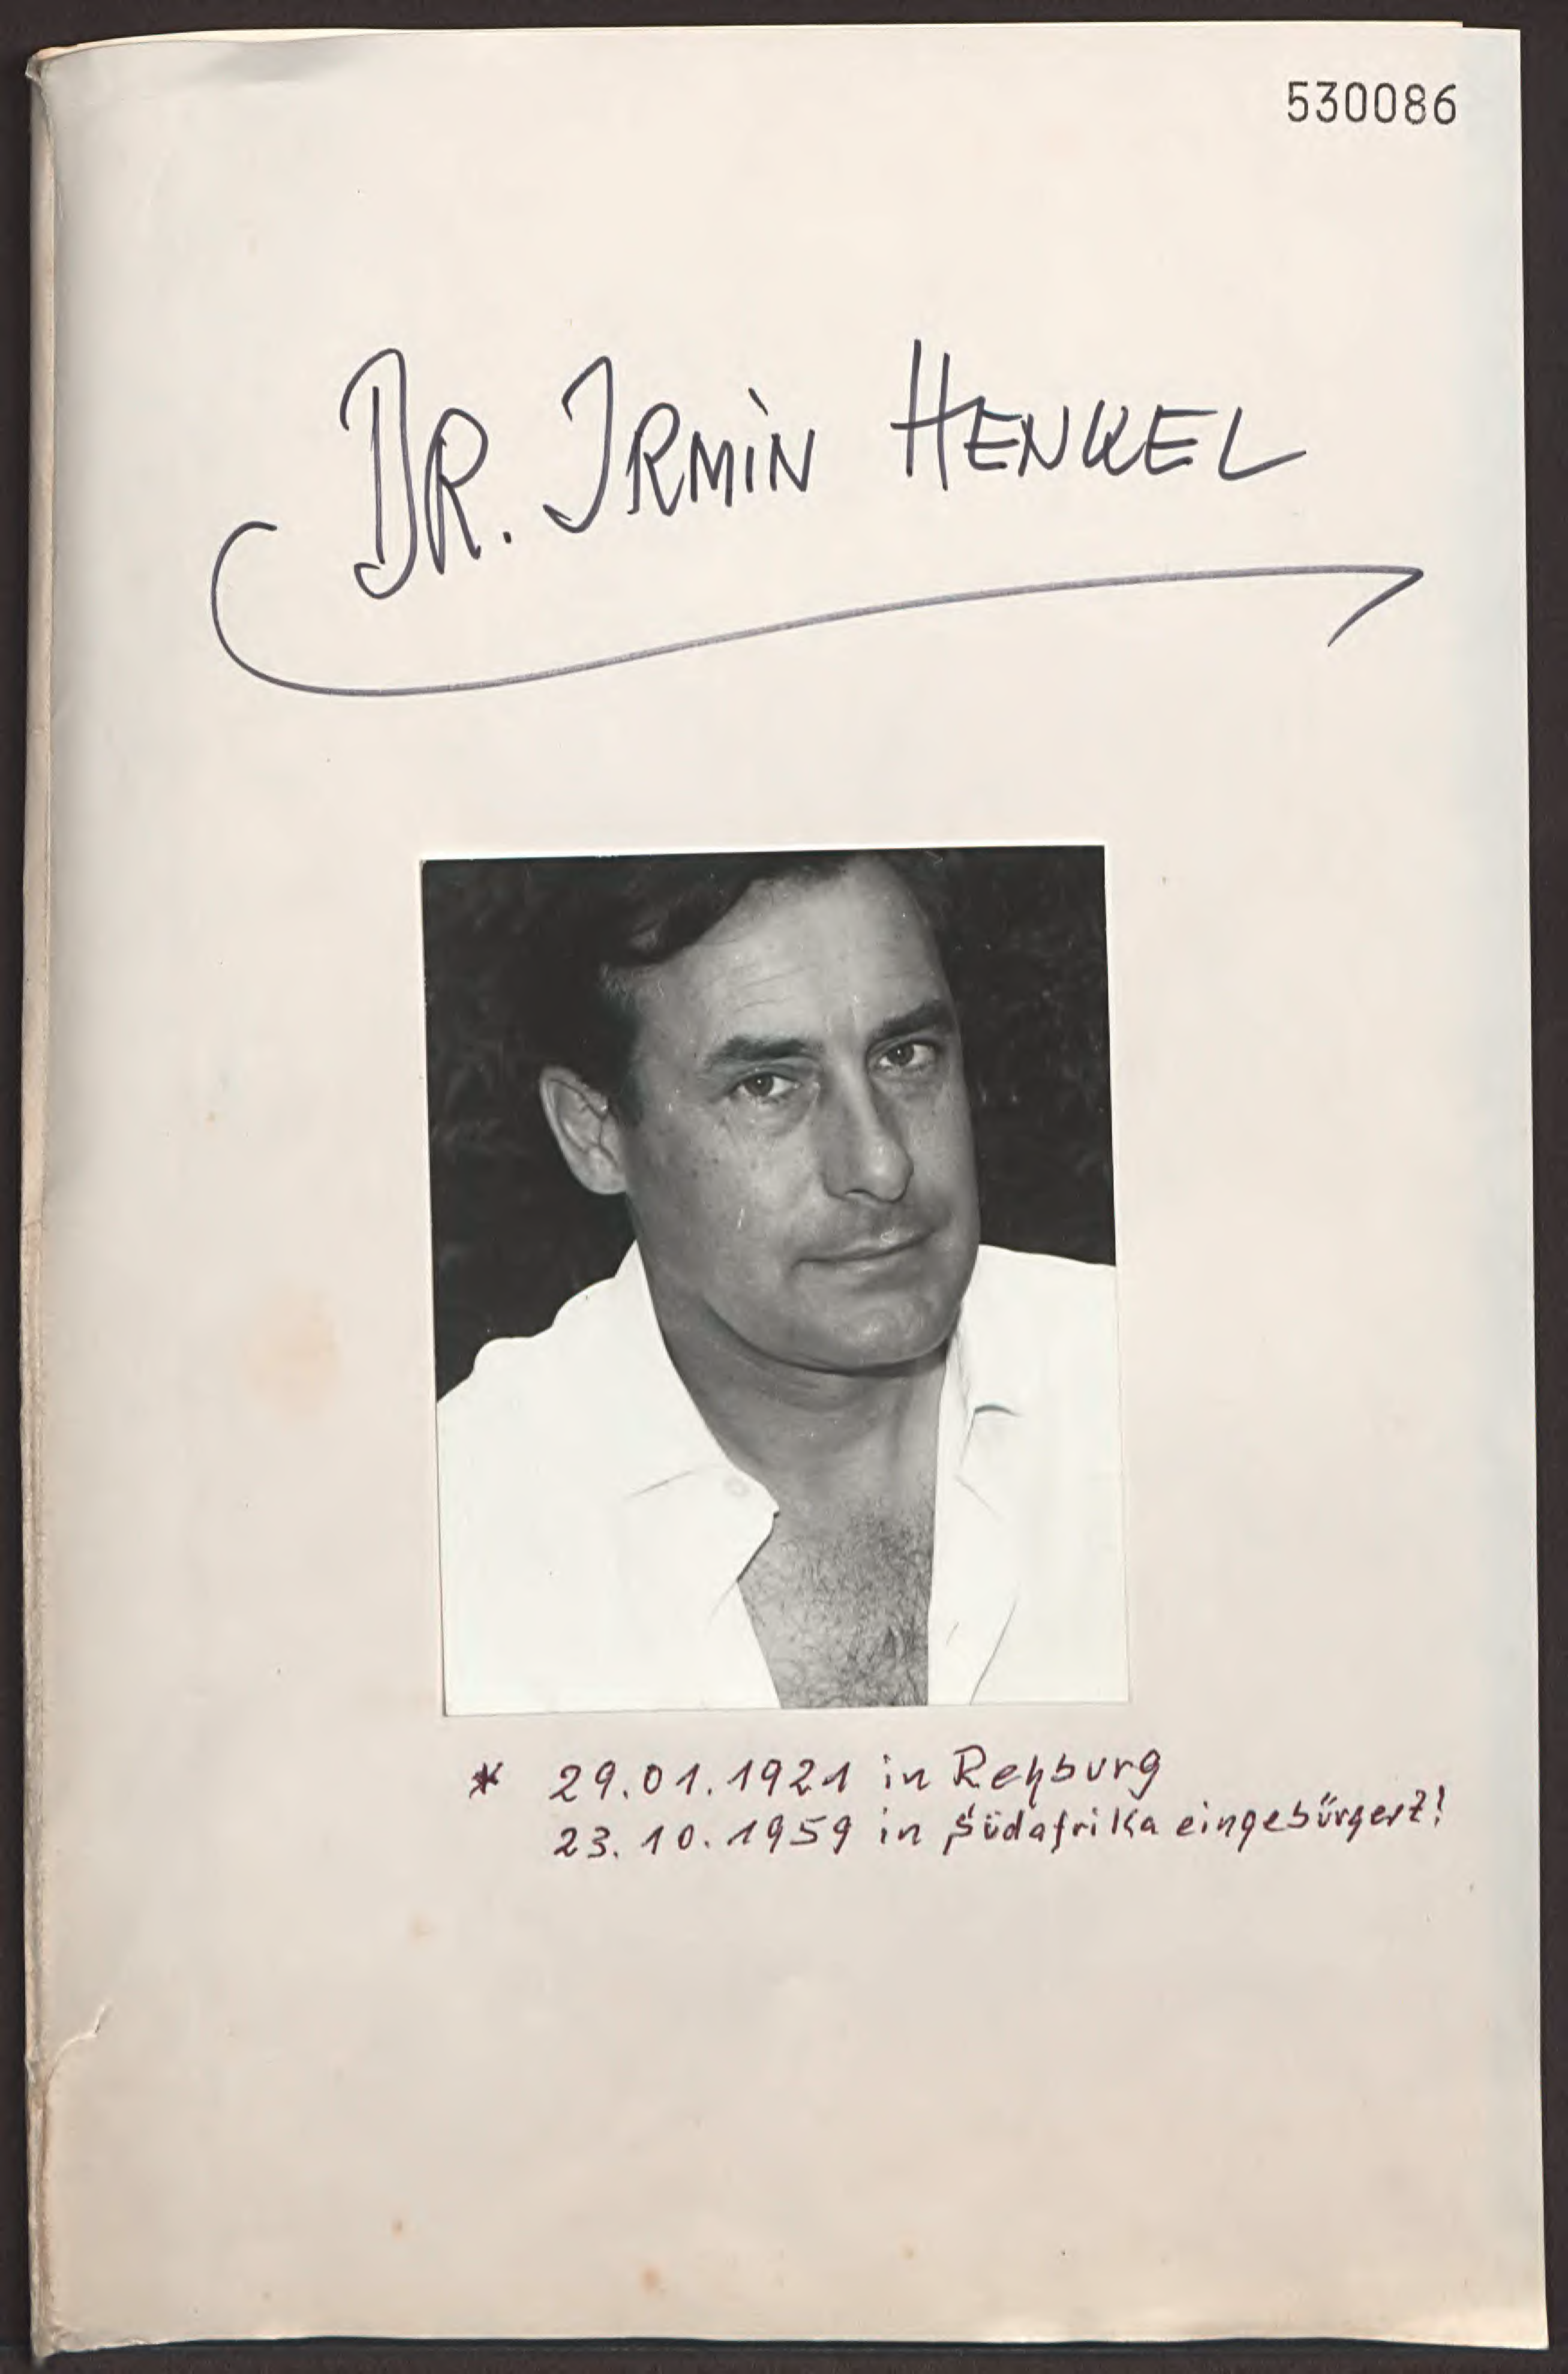 530086
DR. IRMIN HENKEL
* 29.01.1921 in Rehburg
23.10.1959 in Südafrika eingebürgert!